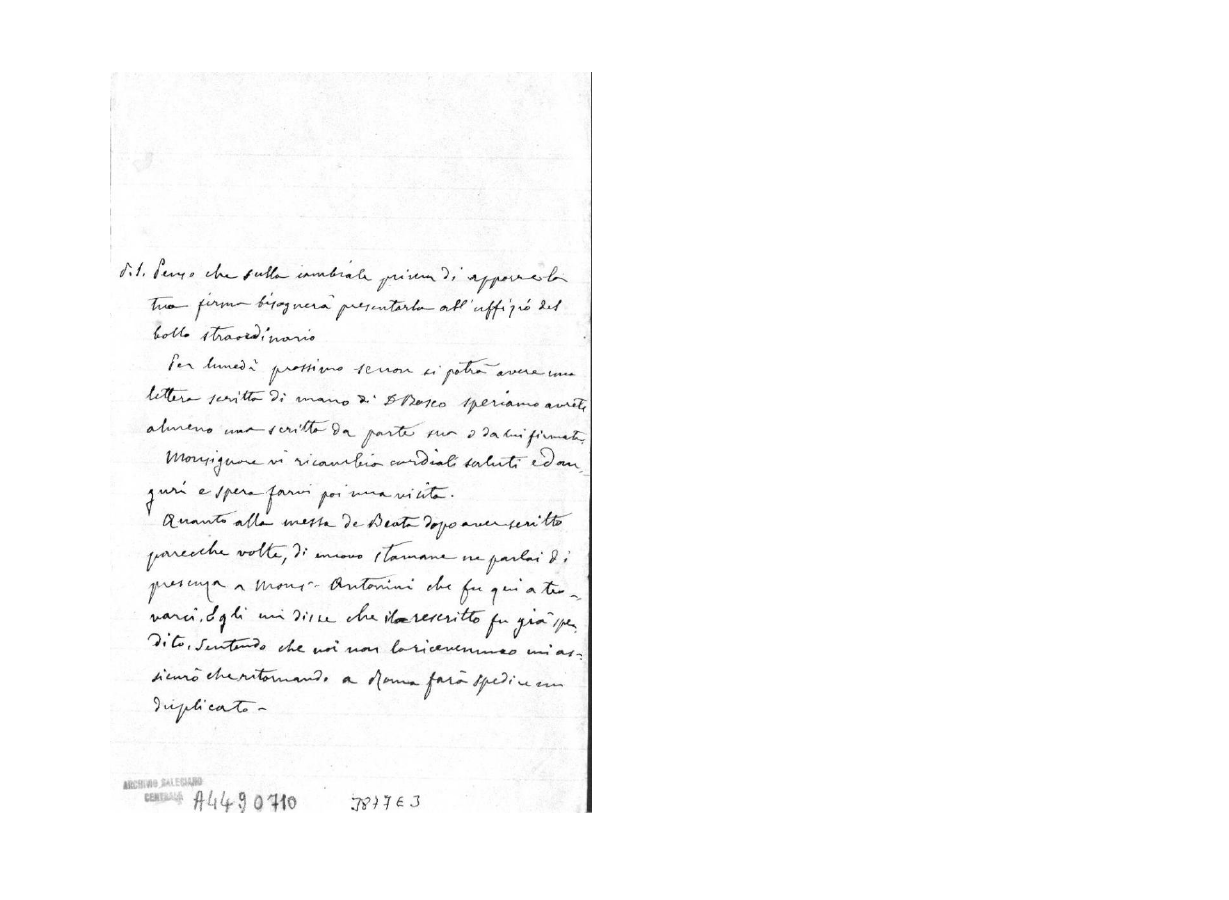 P.S. Penso che sulla cambiale prima di apporre la
tua firma bisognerà presentarla all'uffizio del
bollo straordinario
Per lunedì prossimo se non si potrà avere una
lettera scritta di mano di D Bosco speriamo avrete
almeno una scritta da parte sua o da lui firmata.
Monsignore vi ricambia cordiali saluti ed au-
guri e spera farvi poi una visita.
Quanto alla messa de Beata dopo aver scritto
parecchie volte, di nuovo stamane ne parlai di
presenza a Mons. Antonini che fu qui a tro-
varci. Egli mi disse che il rescritto fu già spe
dito. Sentendo che noi non lo ricevemmo mi as-
sicurò che ritornando a Roma farà spedire un
duplicato -
ARCHIVIO SALESIANO
CENTRALE A4490710 3877E3